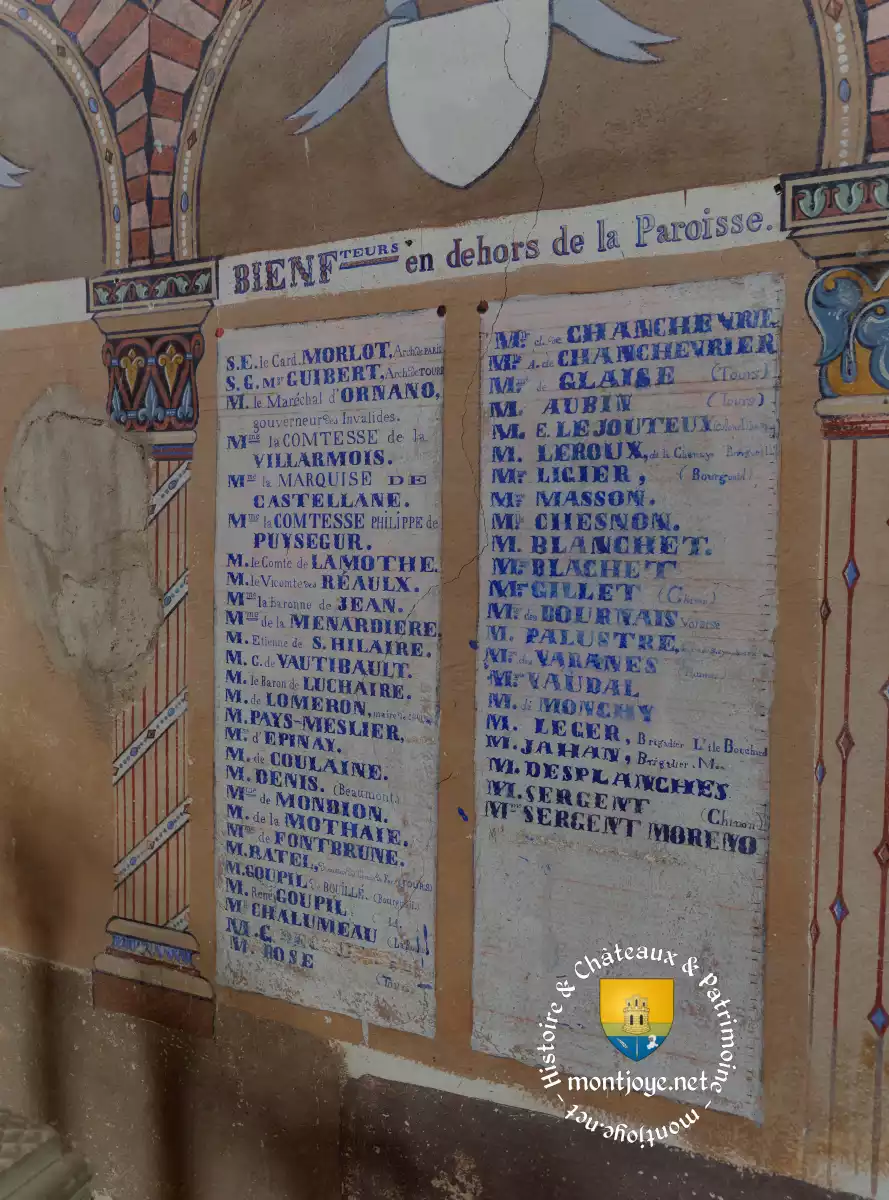 BIENFTEURS en dehors de la Paroisse.
S.E. le Card. MORLOT, Arch. de PARIS
S.G. Mgr GUIBERT, Arch. de TOURS
M. le Maréchal d'ORNANO,
gouverneur des Invalides.
Mme la COMTESSE de la
VILLARMOIS.
Mme la MARQUISE DE
CASTELLANE.
Mme la COMTESSE PHILIPPE de
PUYSEGUR.
M. le Comte de LAMOTHE.
M. le Vicomte des RÉAULX.
Mme la Baronne de JEAN.
Mme de la MENARDIERE.
M. Etienne de S. HILAIRE.
M. C. de VAUTIBAULT.
M. le Baron de LUCHAIRE.
M. de LOMERON, maire de
M. PAYS-MESLIER,
Mr d'EPINAY.
M. de COULAINE.
M. DENIS. (Beaumont)
Mme de MONDION.
M. de la MOTHAIE.
Mme de FONTBRUNE.
M. RATEL, (TOURS)
M. GOUPIL de BOUILLÉ.
M. René GOUPIL id.
Mr CHALUMEAU
M. G
M. BOSE
(Tours)
Mr CHANCHEVRIE
Mr A. de CHANCHEVRIER
Mme de GLAISE (Tours)
M. AUBIN (Tours)
M. E. LEJOUTEUX
M. LEROUX, de la
Mr LIGIER, (Bourgueil)
Mr MASSON.
Mlle CHESNON.
M. BLANCHET.
Mr BLACHET
Mr GILLET (Chinon)
Mr des BOURNAIS
M. PALUSTRE,
Mr des VARANES
Mr VAUDAL
M. di MONCHY
M. LEGER, Brigadier L'ile Bouchard
M. JAHAN, Brigadier.
M. DESPLANCHES
M. SERGENT (Chinon)
Mme SERGENT MORENO
Histoire & Châteaux & Patrimoine
montjoye.net
montjoye.net